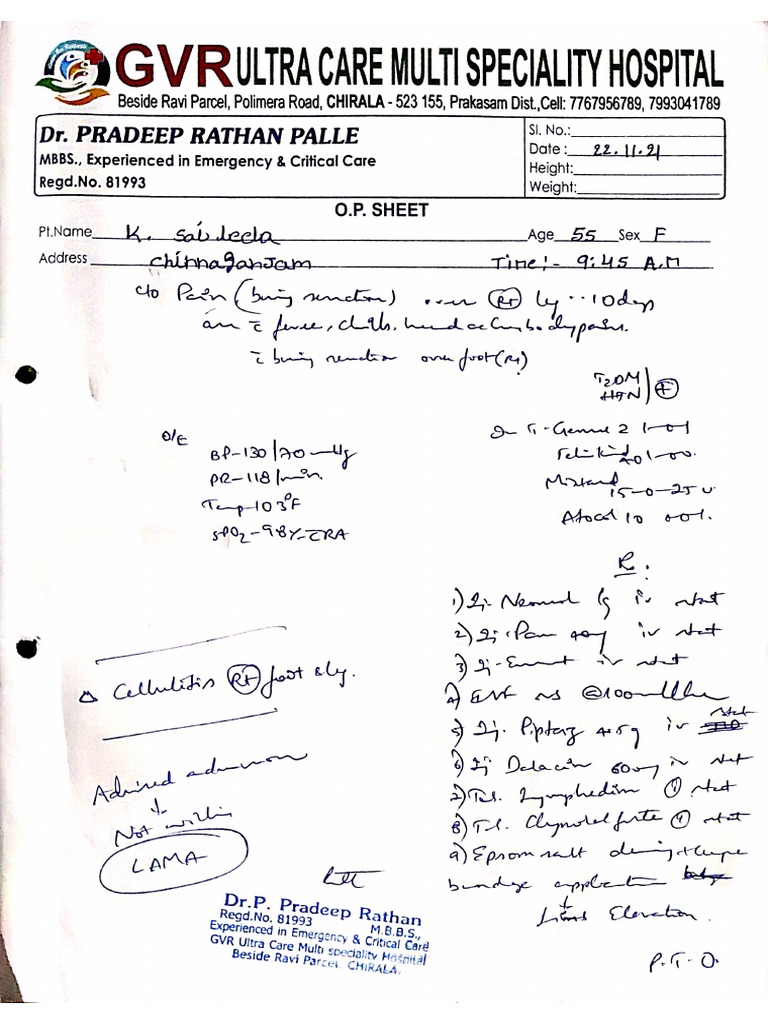 GVR ULTRA CARE MULTI SPECIALITY HOSPITAL
Beside Ravi Parcel, Polimera Road, CHIRALA - 523 155, Prakasam Dist.,Cell: 7767956789, 7993041789
Dr. PRADEEP RATHAN PALLE
MBBS., Experienced in Emergency & Critical Care
Regd.No. 81993
Sl. No.:
Date : 22.11.21
Height:
Weight:
O.P. SHEET
Pt.Name K. Age 55 Sex F
Address Chinnaganjam Time:- 9:45 A.M
c/o Pain ( ) over (Rt) leg 10days
fever, chills, body pains.
over foot (Rt)
T2DM
HTN (+)
O/E
BP-130/70 mmHg
PR-118/min
Temp-103°F
SPO2-98%
1-0-1
40 1-0-0
Mixtard 15-0-25 U
10 0-0-1.
Rx.
1) Inj. 1g iv stat
2) Inj. Pan 40mg iv stat
3) Inj. iv stat
4) NS @100ml/hr
5) Inj. Piptaz 4.5g iv stat
6) Inj Dalacin 600mg iv stat
7) Tab. Lymphedim (1) stat
8) Tab. forte (1) stat
9) Epsom salt
bandage application
↓
Limb Elevation.
P.T.O
△ Cellulitis (Rt) foot & leg.
Advised admission
↓
Not willing
LAMA
Dr.P. Pradeep Rathan
M.B.B.S.,
Regd.No. 81993
Experienced in Emergency & Critical Care
GVR Ultra Care Multi speciality Hospital
Beside Ravi Parcel, CHIRALA.